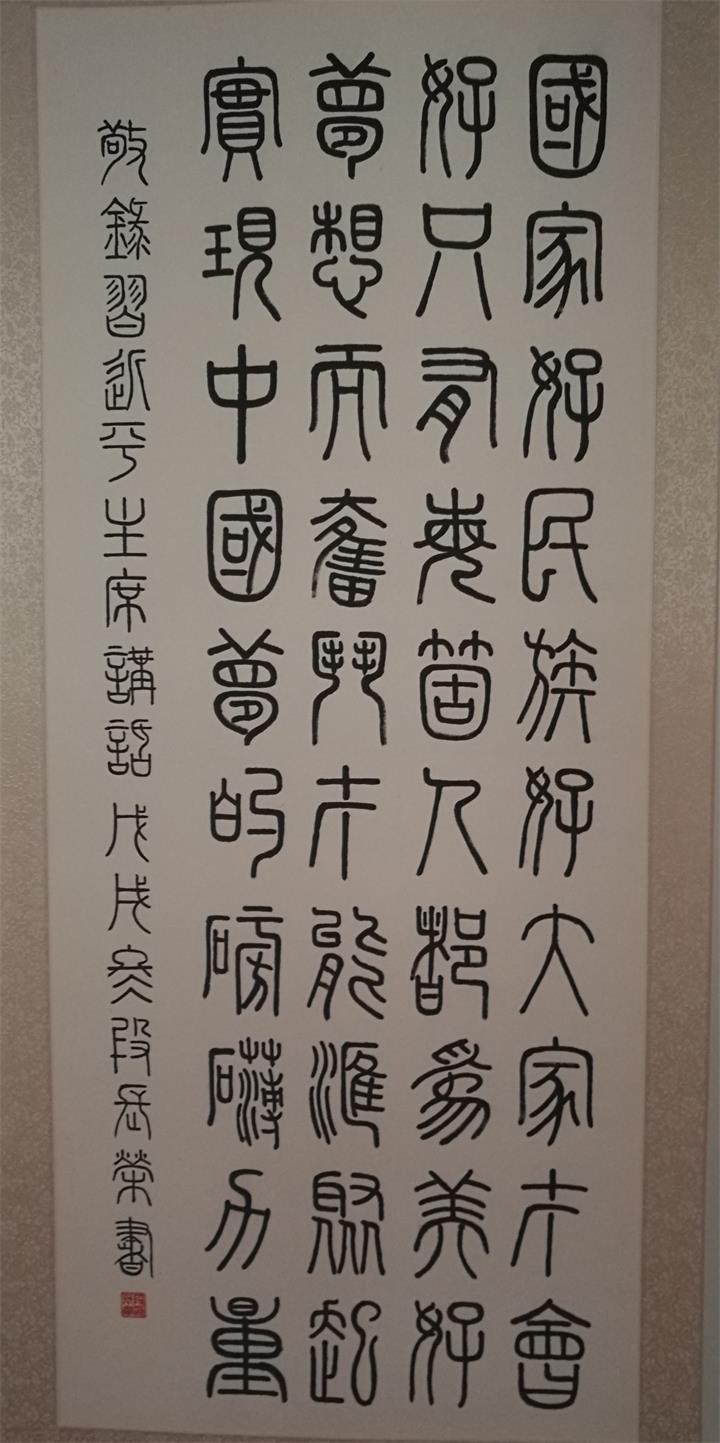 國家好民族好大家才會
好只有每箇人都爲美好
夢想而奮鬥才能滙聚起
實現中國夢的磅礴力量
敬錄習近平主席講話戊戌冬段長榮書